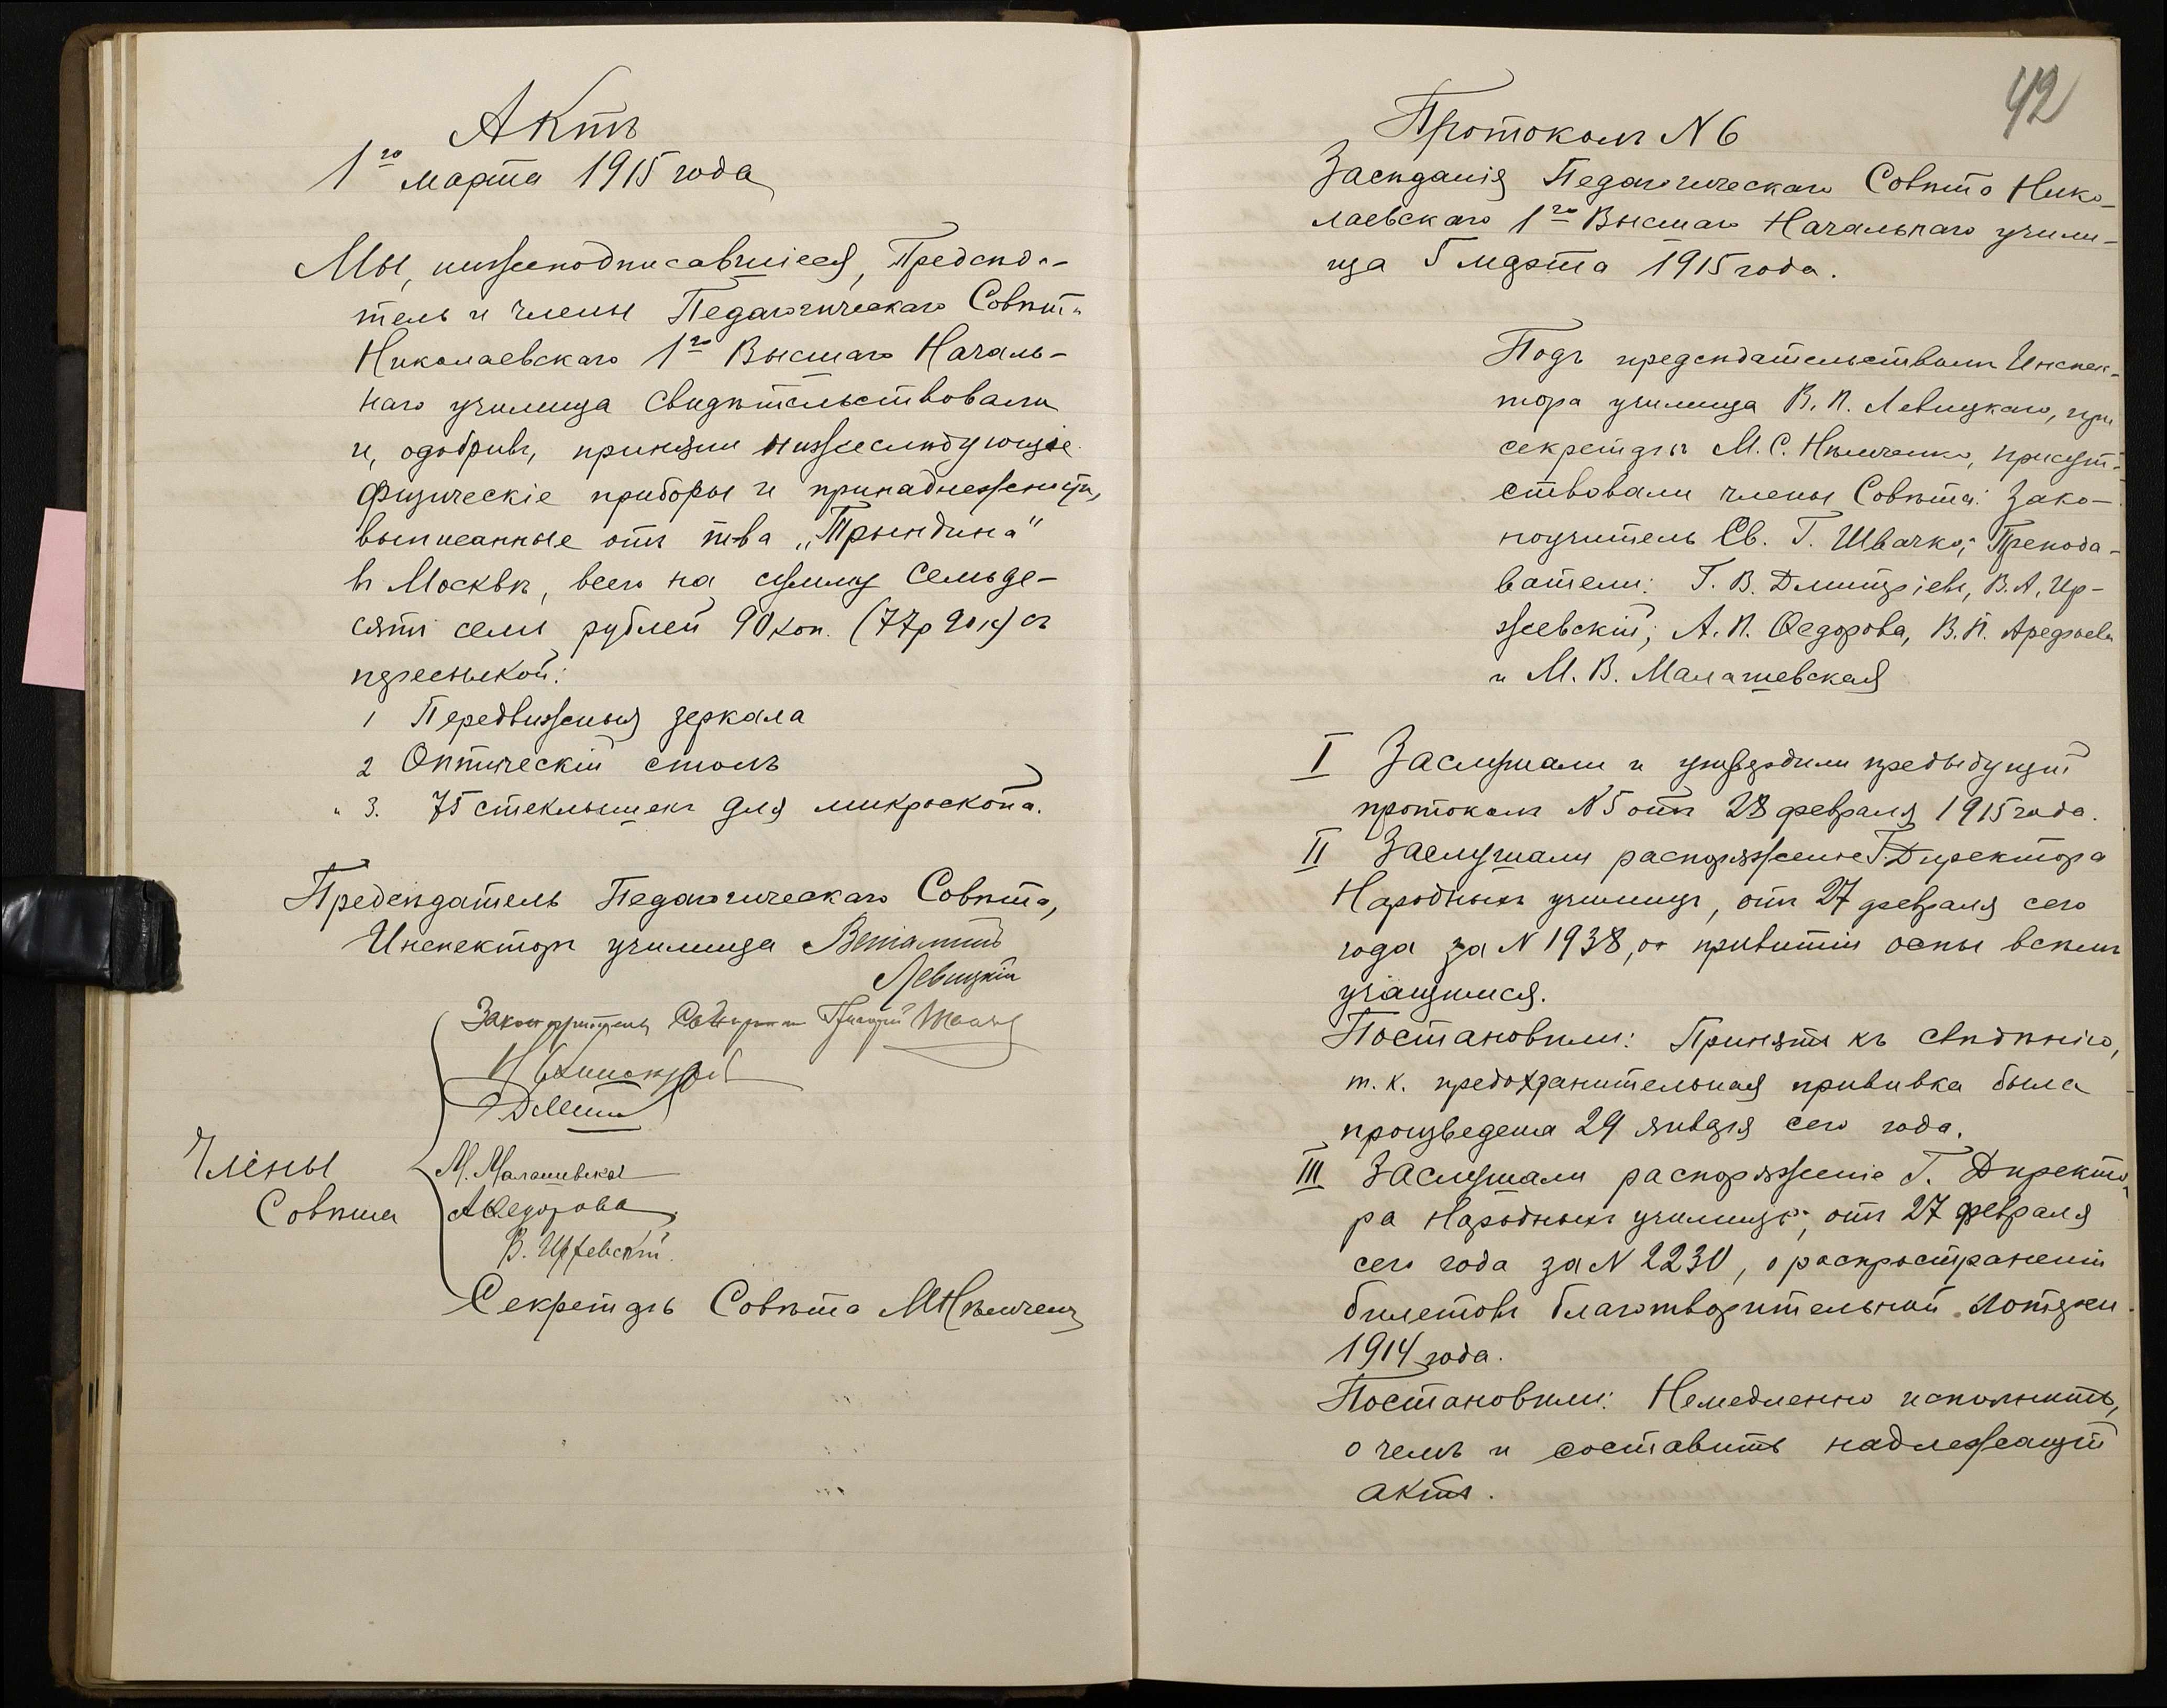 Актъ
1го марта 1915 года
Мы, нижеподписавшіеся, Предсѣда-
тель и члены Педагогическаго Совѣта
Николаевскаго 1го Высшаго Началь-
наго училища свидѣтельствовали
и, одобривъ, приняли нижеслѣдующіе
физическіе приборы и принадлежности,
выписанные отъ т-ва „Трындина"
въ Москвѣ, всего на сумму семьде-
сятъ семь рублей 90 коп. (77р 90 к) съ
пересылкой:
1 Передвижныя зеркала
2 Оптическій столъ
" 3. 75 стеклышекъ для микроскопа.
Предсѣдатель Педагогическаго Совѣта,
Инспекторъ училища Веніаминъ
Левицкій
Законоучитель Священникъ Григорій
Члены
Совѣта
М. Малашевская
АѲедорова
В. Иржевскій.
Секретарь Совѣта МНѣмченко
42
Протоколъ N 6
Засѣданія Педагогическаго Совѣта Нико-
лаевскаго 1го Высшаго Начальнаго учили-
ща 5 марта 1915 года.
Подъ предсѣдательствомъ Инспек-
тора училища В. П. Левицкаго, при
секретарѣ М. С. Нѣмченко, присут-
ствовали члены Совѣта: Зако-
ноучитель Св. Г. Швачко; Препода-
ватели: Г. В. Дмитріевъ, В. А. Ир-
жевскій; А. П. Ѳедорова, В. П.
и М. В. Малашевская
I Заслушали и утвердили предыдущій
протоколъ N 5 отъ 28 февраля 1915 года.
II Заслушали распоряженіе Г. Директора
Народныхъ училищъ, отъ 27 февраля сего
года за N 1938, о привитіи оспы всѣмъ
учащимся.
Постановили: Принять къ свѣдѣнію,
т. к. предохранительная прививка была
произведена 29 января сего года.
III Заслушали распоряженіе Г. Директо-
ра Народныхъ училищъ, отъ 27 февраля
сего года за N 2230, о распространеніи
билетовъ благотворительной лотереи
1914 года.
Постановили: Немедленно исполнить,
о чемъ и составить надлежащій
актъ.